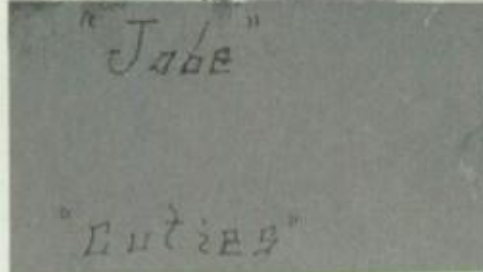 "Jobe"
"Cuties"